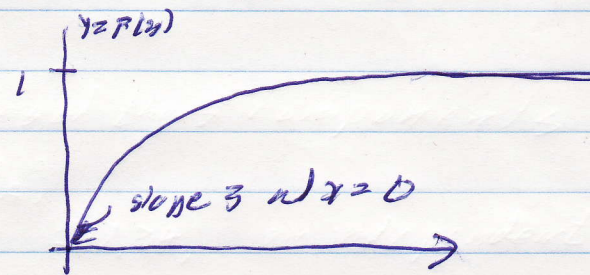 y=F(x)
1
slope 3 at x = 0